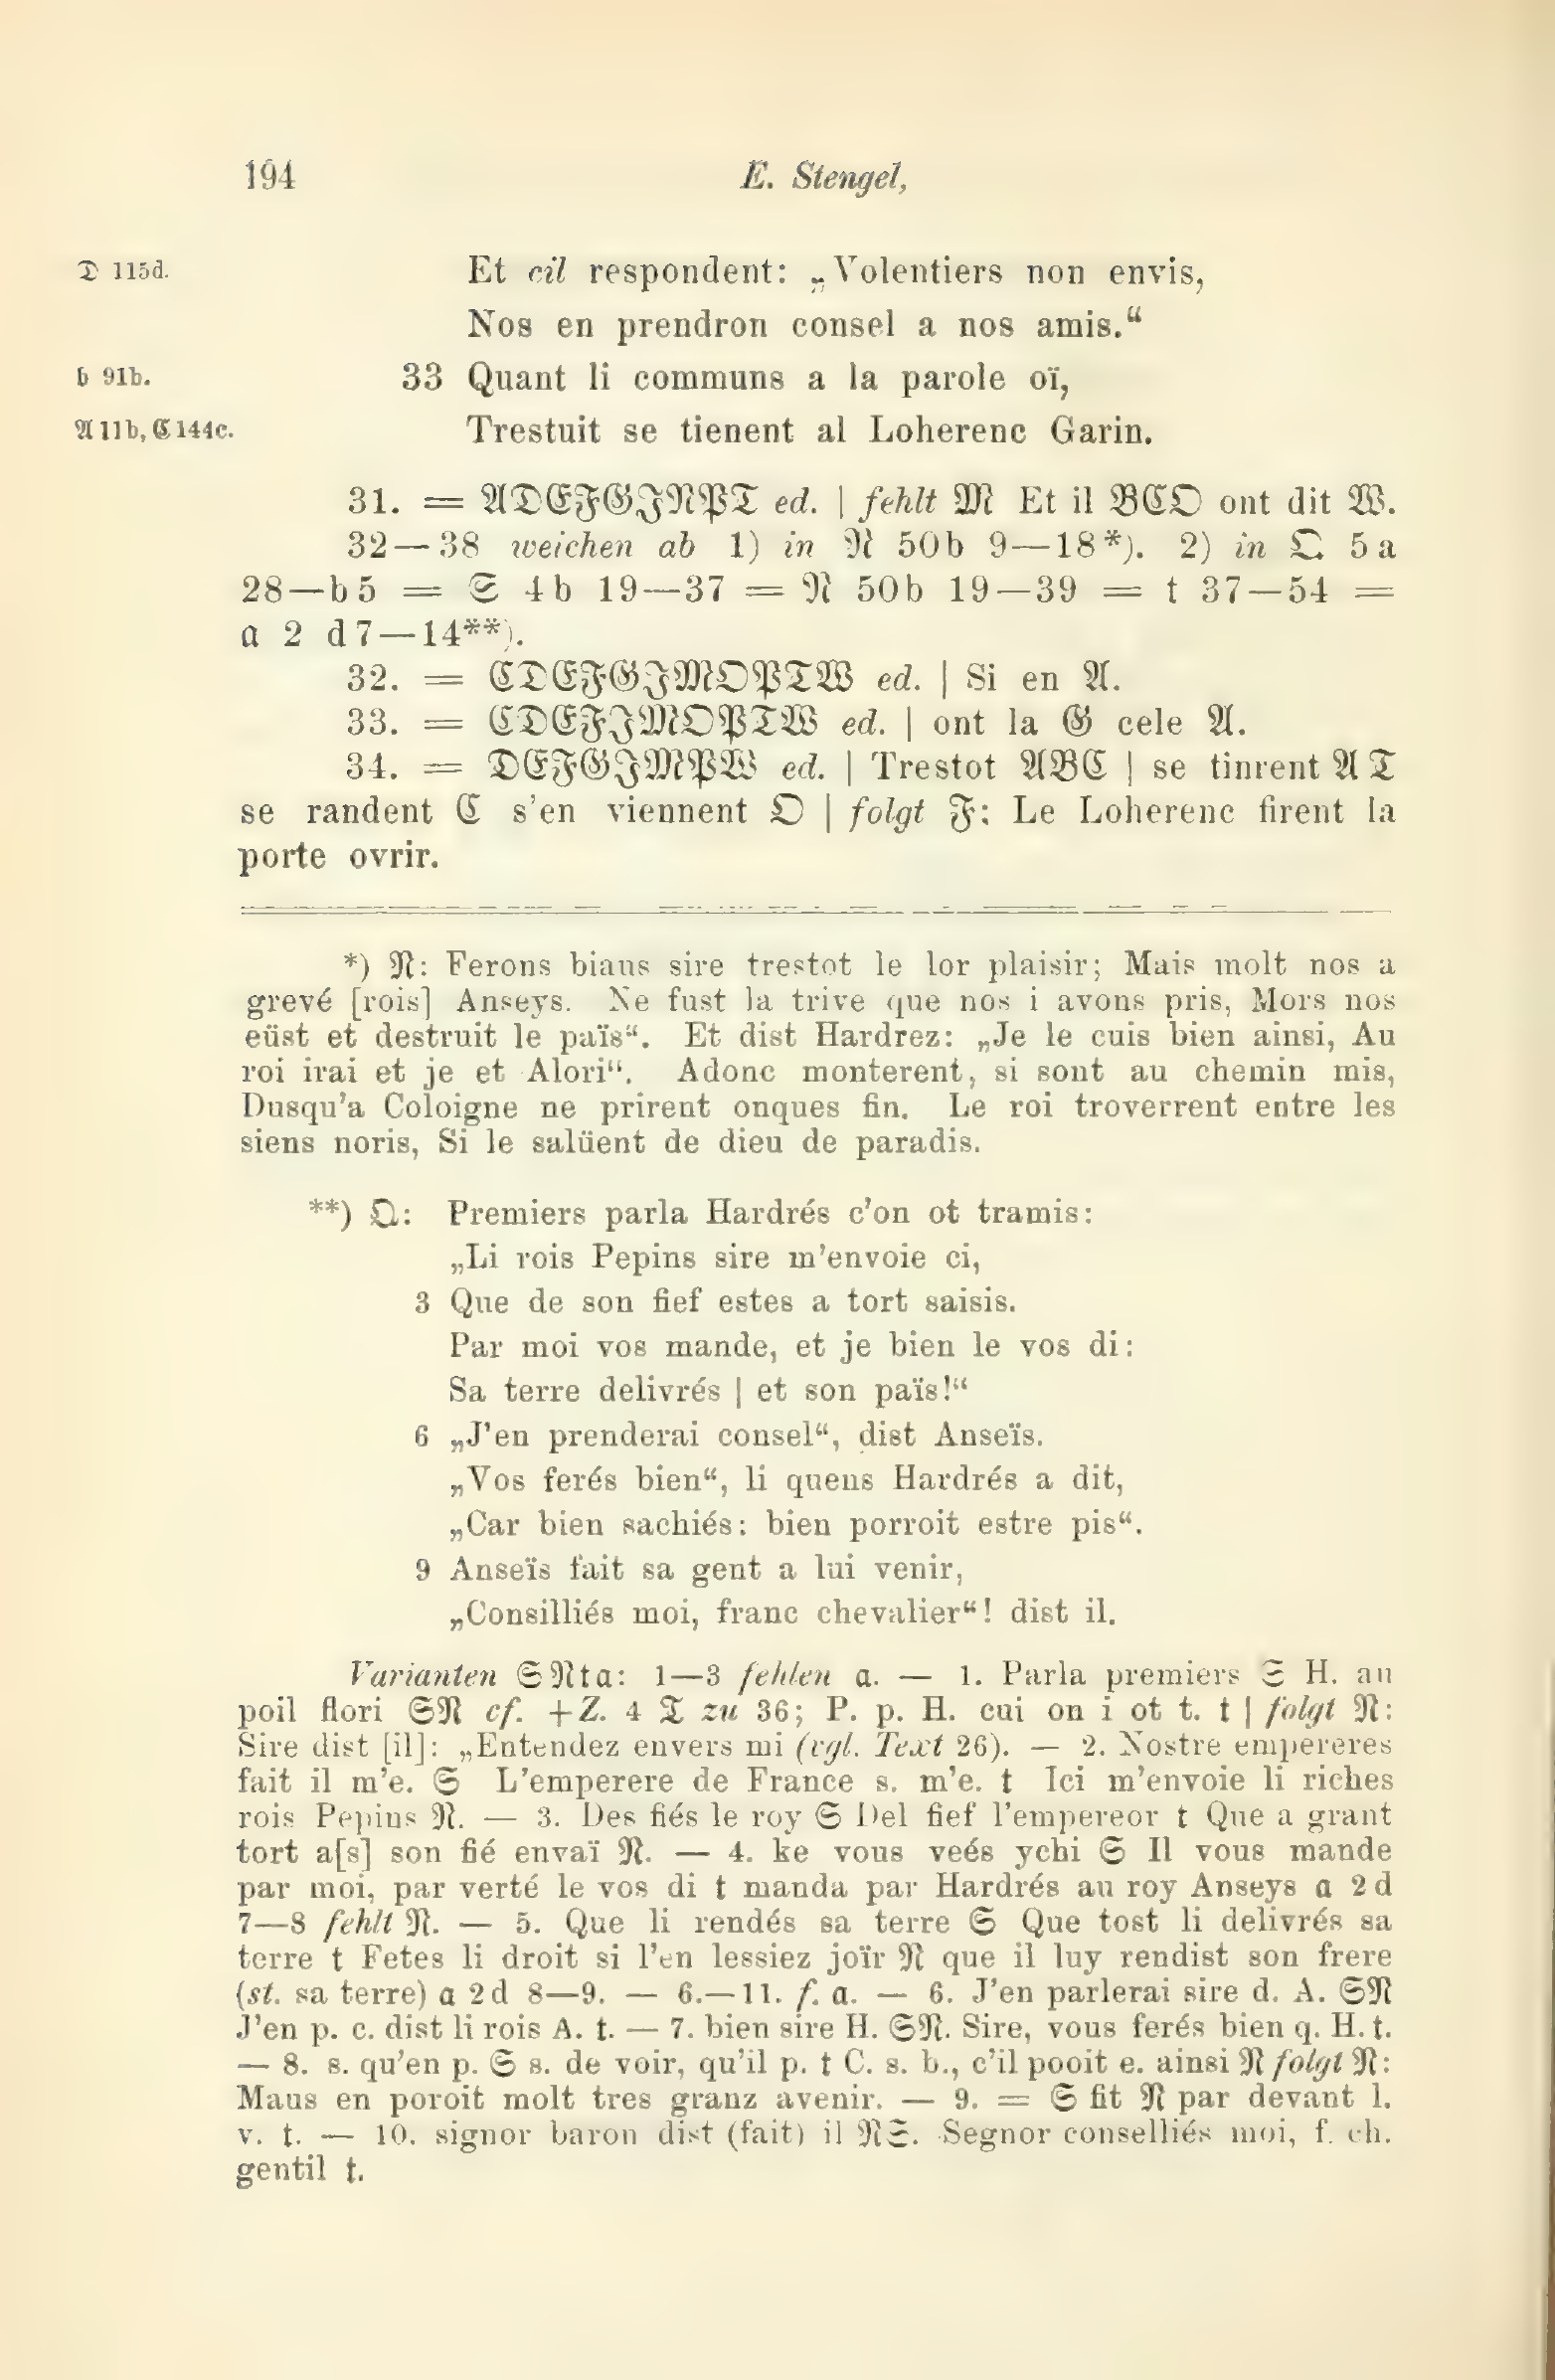 194 E. Stengel,
𝔇 115d. Et cil respondent: „Volentiers non envis,
Nos en prendron consel a nos amis.“
𝔟 91b. 33 Quant li communs a la parole oï,
𝔄 11b, ℭ 144c. Trestuit se tienent al Loherenc Garin.
31. = 𝔄𝔇𝔈𝔉𝔊𝔍𝔑𝔓𝔗 ed. | fehlt 𝔐 Et il 𝔅ℭ𝔒 ont dit 𝔚.
32—38 weichen ab 1) in 𝔑 50b 9—18*). 2) in 𝔔 5a
28—b5 = 𝔖 4b 19—37 = 𝔑 50b 19—39 = 𝔱 37—54 =
𝔞 2 d7—14**).
32. = ℭ𝔇𝔈𝔉𝔊𝔍𝔐𝔒𝔓𝔗𝔚 ed. | Si en 𝔄.
33. = ℭ𝔇𝔈𝔉𝔍𝔐𝔒𝔓𝔗𝔚 ed. | ont la 𝔊 cele 𝔄.
34. = 𝔇𝔈𝔉𝔊𝔍𝔐𝔓𝔚 ed. | Trestot 𝔄𝔅ℭ | se tinrent 𝔄 𝔗
se randent ℭ s'en viennent 𝔒 | folgt 𝔉: Le Loherenc firent la
porte ovrir.
*) 𝔑: Ferons biaus sire trestot le lor plaisir; Mais molt nos a
grevé [rois] Anseys. Ne fust la trive que nos i avons pris, Mors nos
eüst et destruit le païs“. Et dist Hardrez: „Je le cuis bien ainsi, Au
roi irai et je et Alori“. Adonc monterent, si sont au chemin mis,
Dusqu'a Coloigne ne prirent onques fin. Le roi troverrent entre les
siens noris, Si le salüent de dieu de paradis.
**) 𝔔: Premiers parla Hardrés c'on ot tramis:
„Li rois Pepins sire m'envoie ci,
3 Que de son fief estes a tort saisis.
Par moi vos mande, et je bien le vos di:
Sa terre delivrés | et son païs!“
6 „J'en prenderai consel“, dist Anseïs.
„Vos ferés bien“, li quens Hardrés a dit,
„Car bien sachiés: bien porroit estre pis“.
9 Anseïs fait sa gent a lui venir,
„Consilliés moi, franc chevalier“! dist il.
Varianten 𝔖𝔑𝔱𝔞: 1—3 fehlen 𝔞. — 1. Parla premiers 𝔖 H. au
poil flori 𝔖𝔑 cf. +Z. 4 𝔗 zu 36; P. p. H. cui on i ot t. 𝔱 | folgt 𝔑:
Sire dist [il]: „Entendez envers mi (vgl. Text 26). — 2. Nostre empereres
fait il m'e. 𝔖 L'emperere de France s. m'e. 𝔱 Ici m'envoie li riches
rois Pepins 𝔑. — 3. Des fiés le roy 𝔖 Del fief l'empereor 𝔱 Que a grant
tort a[s] son fié envaï 𝔑. — 4. ke vous veés ychi 𝔖 Il vous mande
par moi, par verté le vos di 𝔱 manda par Hardrés au roy Anseys 𝔞 2d
7—8 fehlt 𝔑. — 5. Que li rendés sa terre 𝔖 Que tost li delivrés sa
terre 𝔱 Fetes li droit si l'en lessiez joïr 𝔑 que il luy rendist son frere
(st. sa terre) 𝔞 2d 8—9. — 6.—11. f. 𝔞. — 6. J'en parlerai sire d. A. 𝔖𝔑
J'en p. c. dist li rois A. t. — 7. bien sire H. 𝔖𝔑. Sire, vous ferés bien q. H. t.
— 8. s. qu'en p. 𝔖 s. de voir, qu'il p. 𝔱 C. s. b., c'il pooit e. ainsi 𝔑 folgt 𝔑:
Maus en poroit molt tres granz avenir. — 9. = 𝔖 fit 𝔑 par devant l.
v. 𝔱. — 10. signor baron dist (fait) il 𝔑𝔖. Segnor conselliés moi, f. ch.
gentil 𝔱.